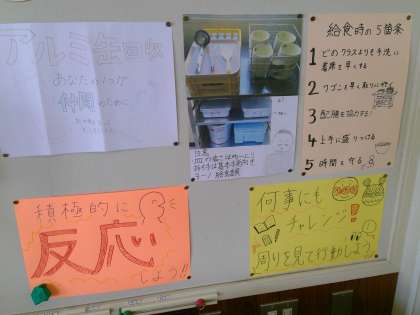 アルミ缶回収
あなたの1コが
仲間のために
給食時の5箇条
1 どのクラスよりも手洗い
着席を早くする
2 ワゴンを早く取りに行く
3 配膳を協力する!
4 上手に盛りつける
5 時間を守る
積極的に
反応
しよう!!
何事にも
チャレンジ!
周りを見て行動しよう